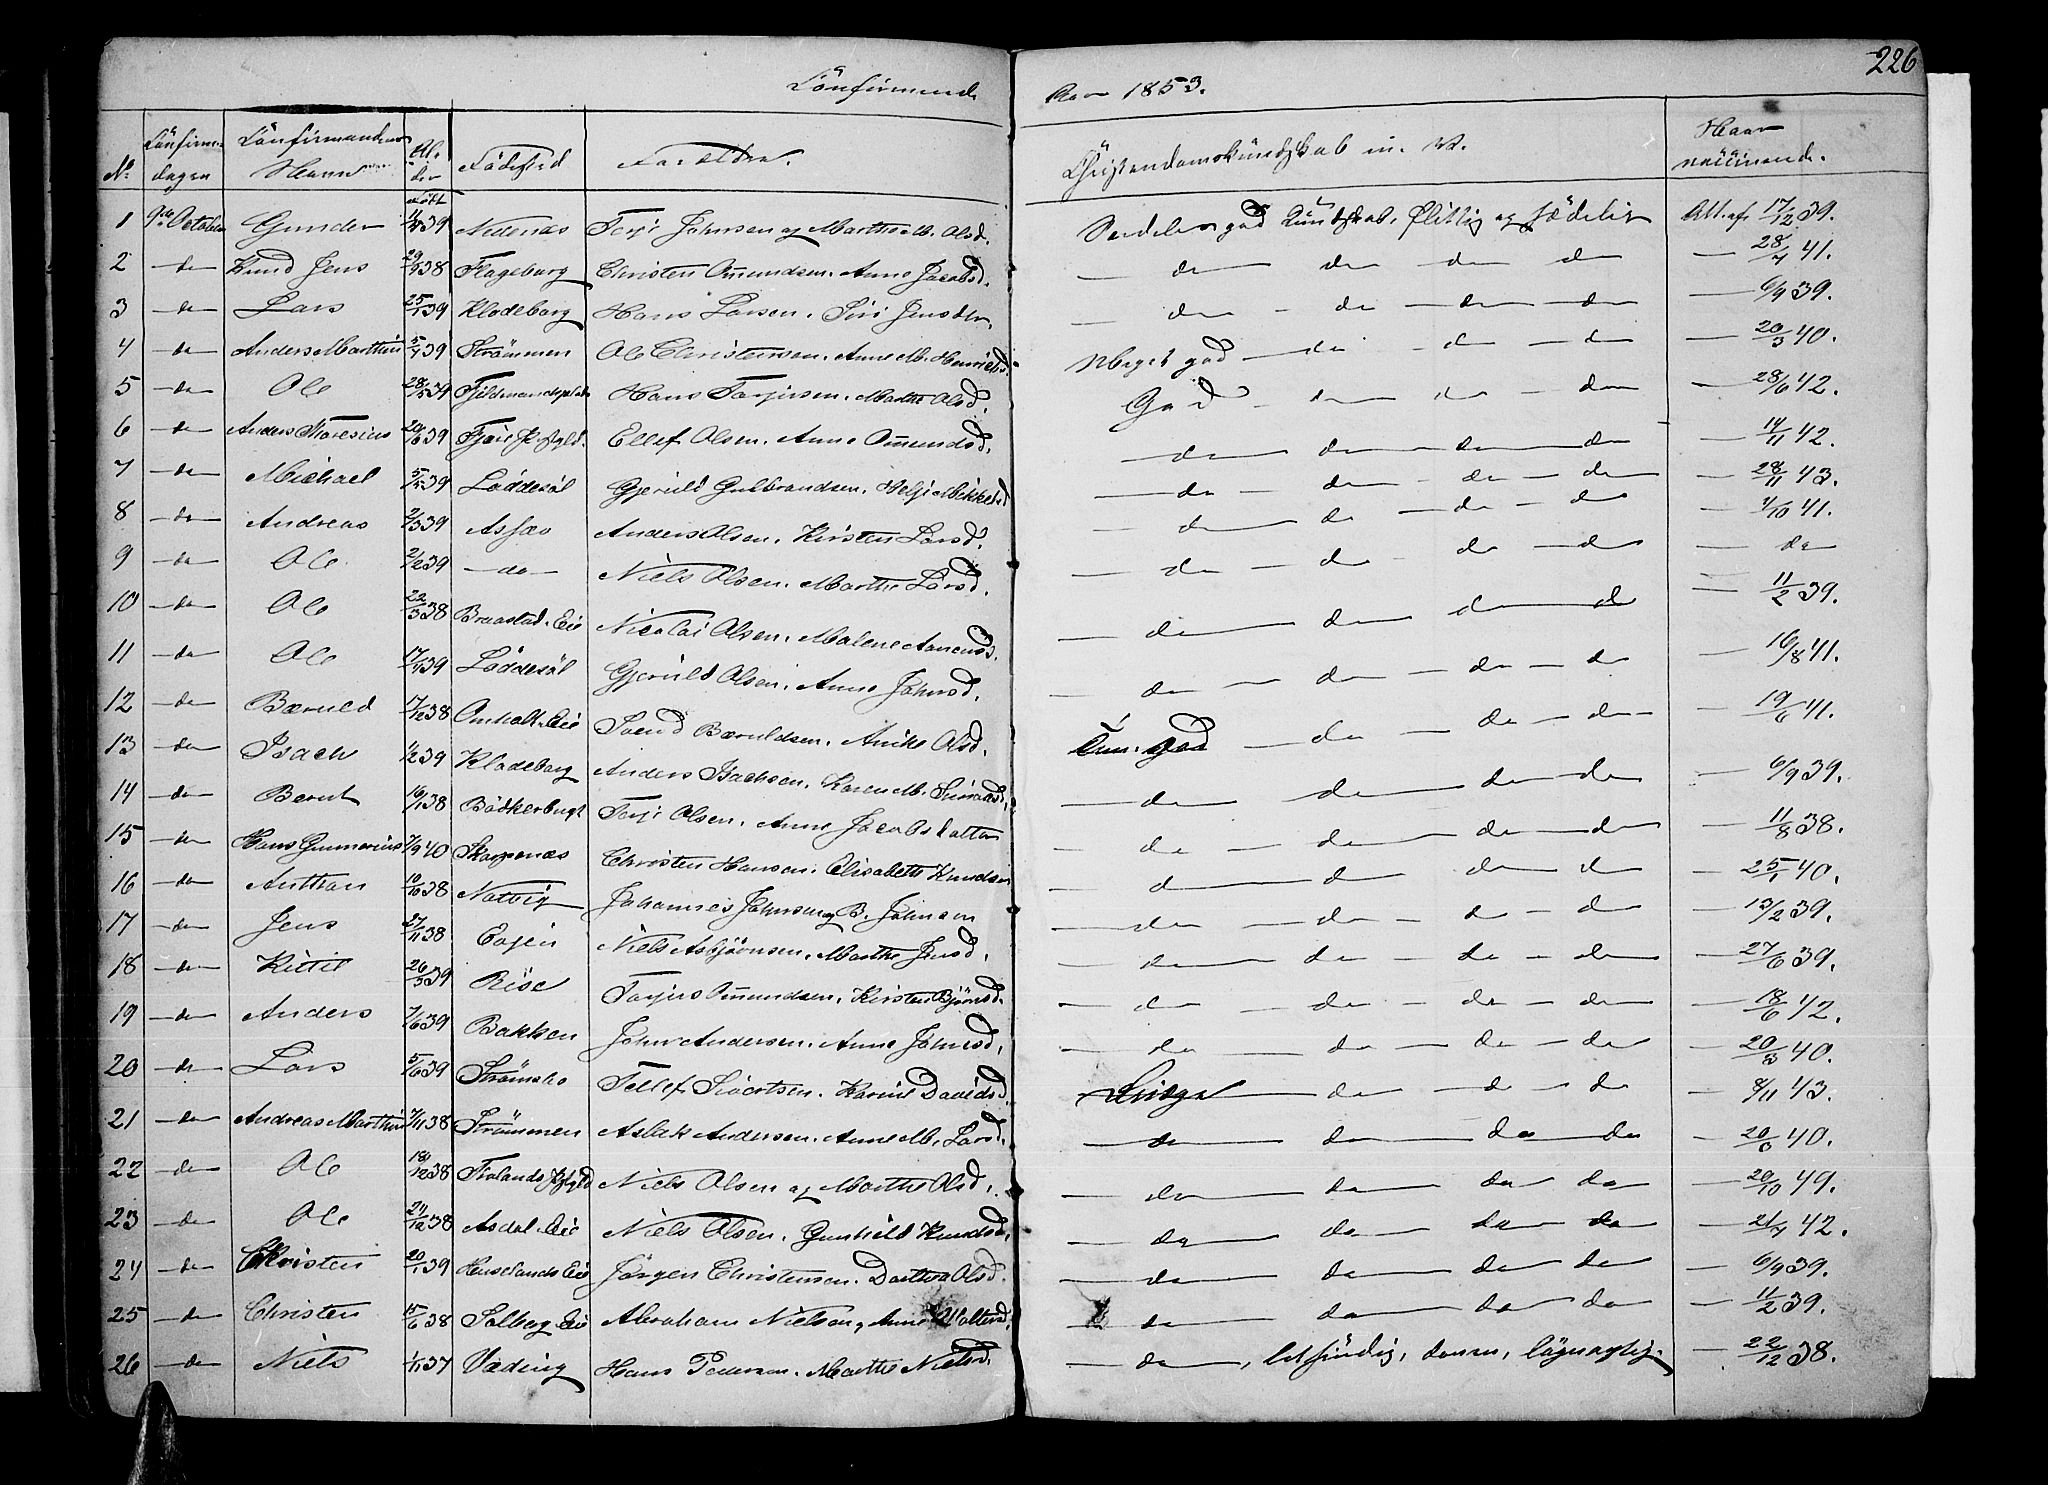 226
Confirmerede Aar 1853.
No Confirma- dagen Confirmandens Navn Alder Födested Forældre. Christendomskundskab m. V. Naar vaccineret.
1 9de October Gunder født 39 Nedenæs Terje Johnsen og Marthe M. Olsd. Særdeles god Kundskab. Flittig og sædelig Att. af 17/12 39.
2 — do Knud Jens 29/9 38 Flageborg Christen Omundsen. Anne Jacobsd. — do do do do — 28/7 41.
3 — do Lars 25/1 39 Klodeborg Hans Larsen. Siri Jensdtr. — do — do — do — do — 6/9 39.
4 — do Anders Marthin 5/4 39 Strømmen Ole Christensen. Anne M. Henriksd. Meget god — do — do — do — 20/3 40.
5 — do Ole 39 Hans Terjersen. Marthe Olsd. God — do do — do — 28/6 42.
6 — do Anders Thoresius 39 Fjære Ellef Olsen. Anne Omundsd. — do do do do — 14/11 42.
7 — do Michael 39 Løddesøl Gjeruld Gulbrandsen. Helje Mikkelsd — do — do — do — do — 28/11 43.
8 — do Andreas 2/3 39 Assæv Anders Olsen. Kirsten Larsd. — do do — do — do — 4/10 41.
9 — do Ole 2/2 39 — do — Niels Olsen. Marthe Larsd. — do — do — do — do — do
10 — do Ole 22/3 38 Braastad. Eie Nicolai Olsen. Malene Aanensd. — do do do do — 11/2 39.
11 — do Ole 17/4 39 Løddesøl Gjeruld Olsen. Anne Johnsd. — do — do — do — do — 16/8 41.
12 — do Bæruld 17/12 38 Omholt. Eie Svend Bæruldsen. Anike Olsd. Tem. god — do — do — do — 19/6 41.
13 — do Isach 1/2 39 Klodeborg Anders Isachsen. Karen M. — do do do do — 6/9 39.
14 — do Bernt 16/1 38 Bödkerbugt Terje Olsen. Anne Jacobsdatter — do — do do do — 11/8 38.
15 — do Hans Gunnarius 7/9 40 Skarpnæs Christen Hansen. Elisabeth Knudsen — do do do do — 25/1 40.
16 — do Anthon 10/10 38 Natvig Johannes Johnsen og B. Johnsen — do do — do — do — 13/2 39.
17 — do Jens 27/11 38 Niels Asbjörnsen. Marthe Jensd. — do do — do — do — 27/6 39.
18 — do Kittil 26/3 39 Rise Terjus Omundsen. Kirsten Bjørnsd. — do — do — do — do — 18/6 42.
19 — do Anders 7/6 39 Bakken John Andersen. Anne Johnsd. — do do — do — do — 20/3 40.
20 — do Lars 5/6 39 Strømsbo Tellef Sivertsen. Karine Davidsd. do — do — do — 8/11 43.
21 — do Andreas Marthin 7/11 38 Strömmen Aslak Andersen. Anne M. Larsd. — do do do do — 20/3 40.
22 — do Ole 18/12 38 Niels Olsen og Marthe Olsd. — do do do do — 20/10 49.
23 — do Ole 24/12 38 Asdal. Eie Niels Olsen. Gunhild Knudsd. — do do do do — 21/7 42.
24 — do Christen 20/1 39 Huselands Eie Jörgen Christensen. Dorthea Olsd. — do do do do — 6/9 39.
25 — do Christen 15/6 38 Solberg Eie Abraham Nielsen, Anne — do do do do — 11/2 39.
26 — do Niels 1/11 37 Væding Hans Pedersen. Marthe Nielsd. — do, letsindig, doven, lögnagtig. — 22/12 38.